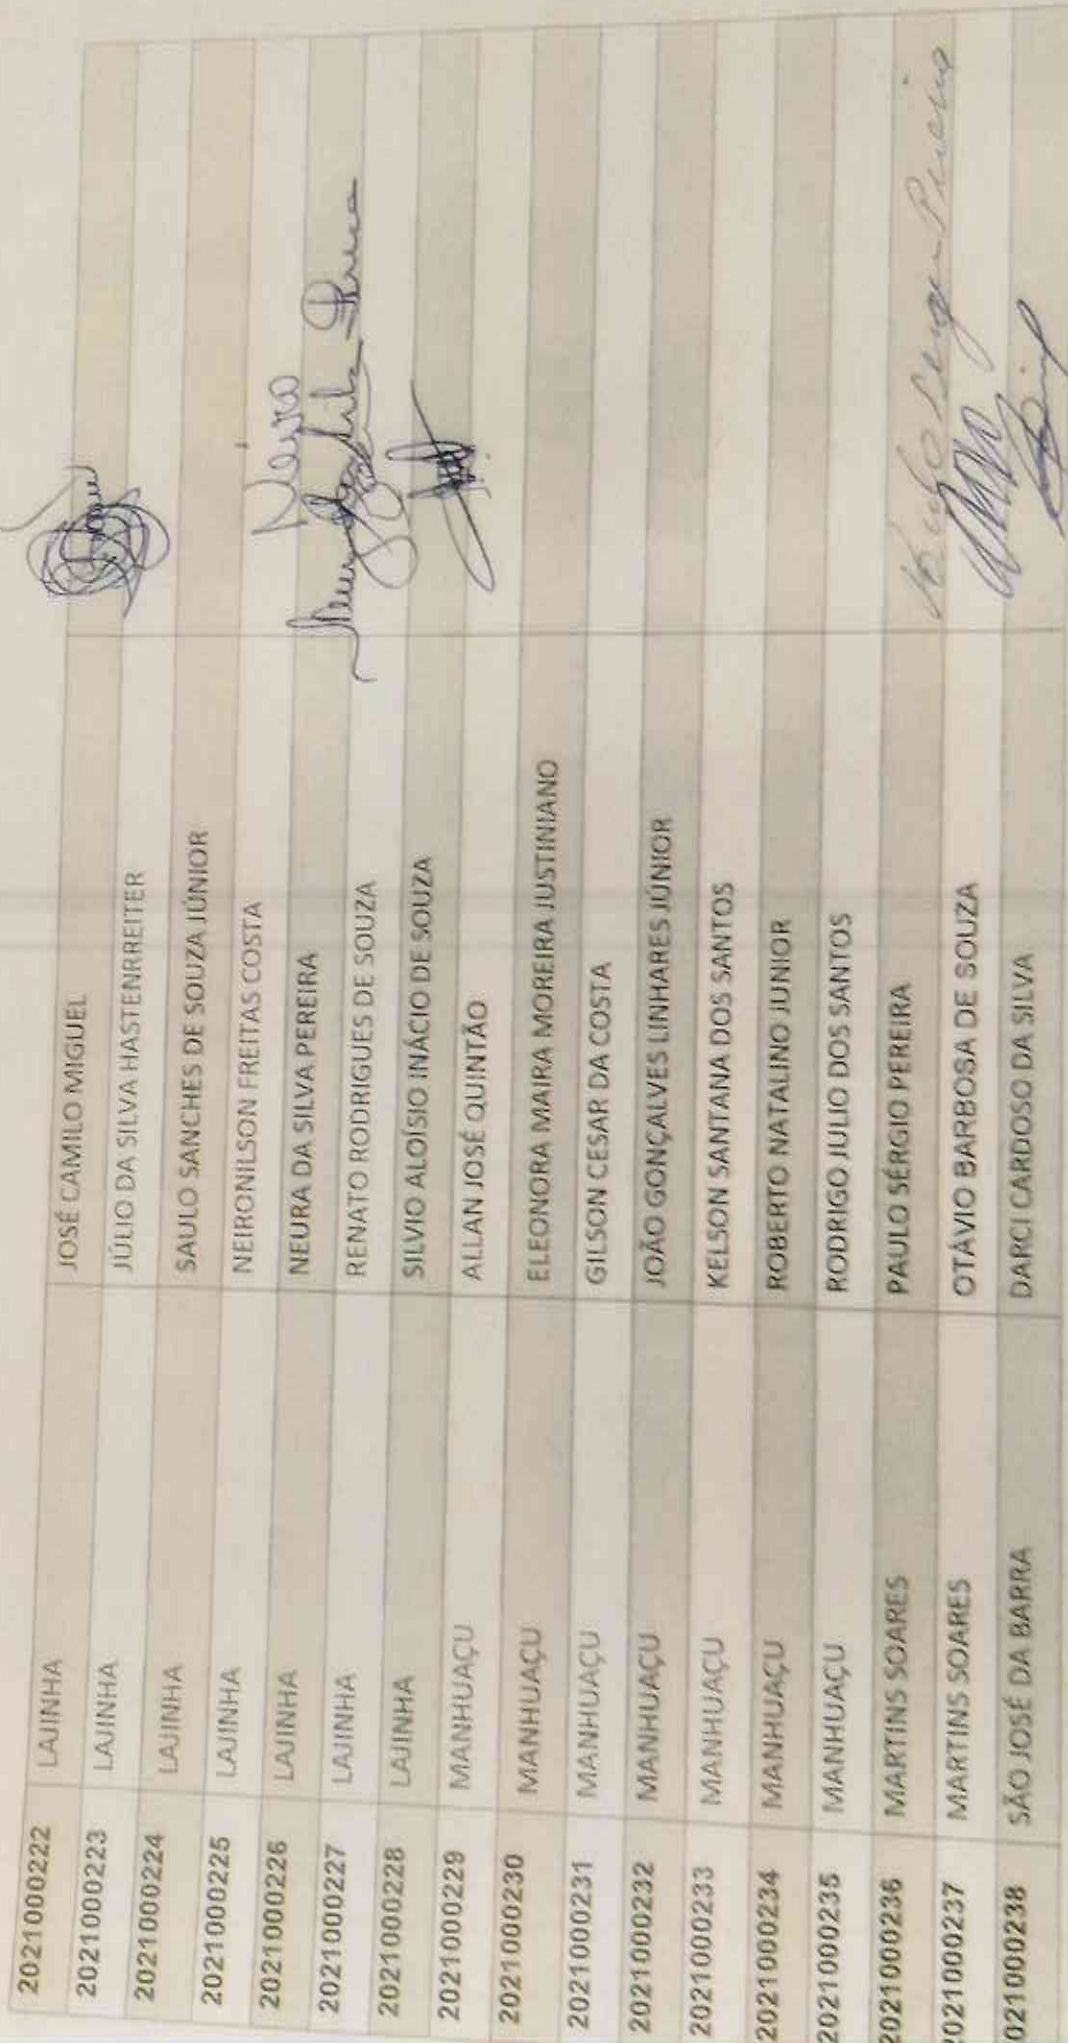 2021000222 LAJINHA JOSÉ CAMILO MIGUEL
2021000223 LAJINHA JÚLIO DA SILVA HASTENRREITER
2021000224 LAJINHA SAULO SANCHES DE SOUZA JÚNIOR
2021000225 LAJINHA NEIRONILSON FREITAS COSTA
2021000226 LAJINHA NEURA DA SILVA PEREIRA
2021000227 LAJINHA RENATO RODRIGUES DE SOUZA
2021000228 LAJINHA SILVIO ALOÍSIO INÁCIO DE SOUZA
2021000229 MANHUAÇU ALLAN JOSÉ QUINTÃO
2021000230 MANHUAÇU ELEONORA MAIRA MOREIRA JUSTINIANO
2021000231 MANHUAÇU GILSON CESAR DA COSTA
2021000232 MANHUAÇU JOÃO GONÇALVES LINHARES JÚNIOR
2021000233 MANHUAÇU KELSON SANTANA DOS SANTOS
2021000234 MANHUAÇU ROBERTO NATALINO JUNIOR
2021000235 MANHUAÇU RODRIGO JULIO DOS SANTOS
2021000236 MARTINS SOARES PAULO SÉRGIO PEREIRA
2021000237 MARTINS SOARES OTÁVIO BARBOSA DE SOUZA
2021000238 SÃO JOSÉ DA BARRA DARCI CARDOSO DA SILVA